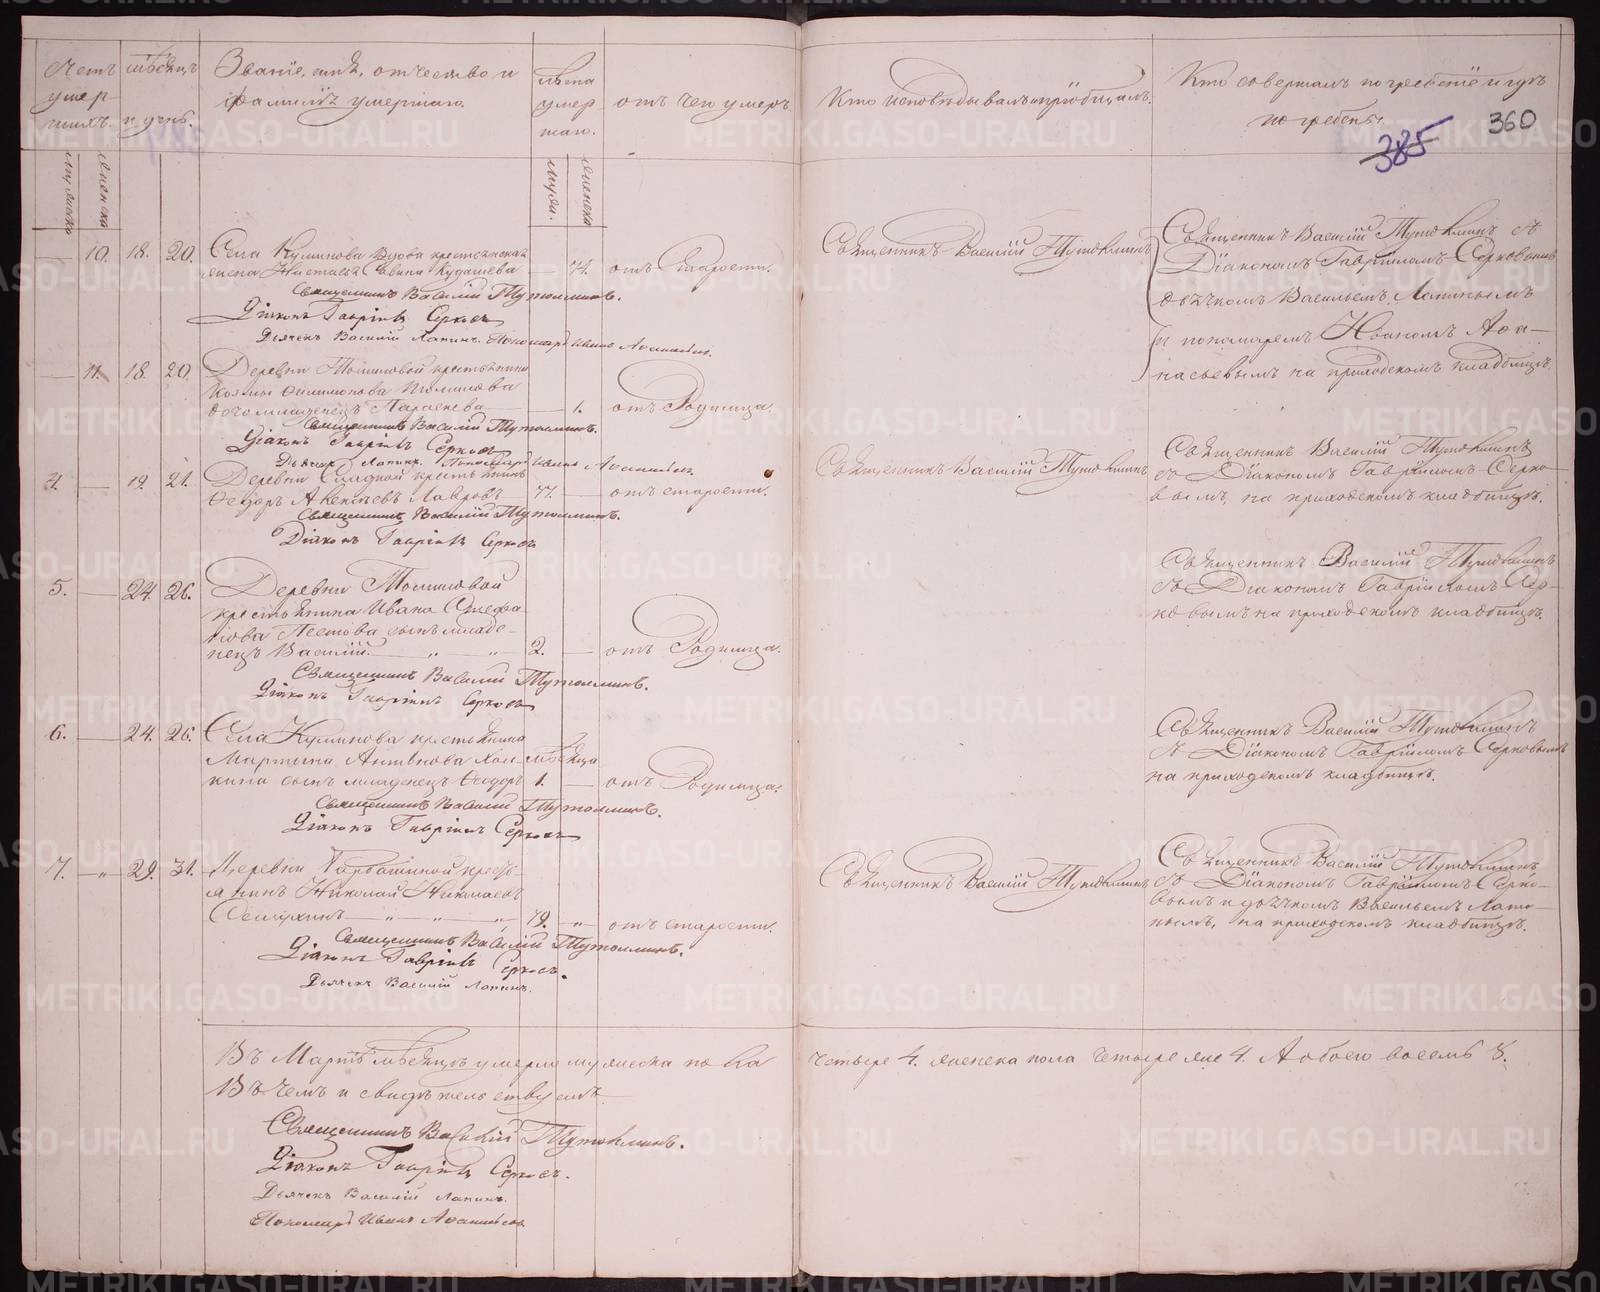 Счетъ умер-
шихъ.
мѣсяцъ
и день.
Званіе, имя, отчество и
фамилія умершаго.
лѣта
умер
шаго.
отъ чего умеръ.
Кто исповѣдывалъ и пріобщалъ.
Кто совершалъ погребеніе и гдѣ
погребены.
360
385
мужеска
женска
мужи.
женска
10. 18. 20. Села Куминова Вдова крестьянская
Кудашева — 71. отъ Старости.
Священникъ Василій Тутолминъ.
Діаконъ Гавріилъ Серковъ
Дьячекъ Василій Лапинъ. Пономарь Иванъ Аѳанасьевъ.
Священникъ Василій Тутолминъ
Священникъ Василій Тутолминъ съ
Діакономъ Гавріиломъ Серковымъ
дьячкомъ Васильемъ Лапинымъ
и пономаремъ Иваномъ Аѳа-
насьевымъ на приходскомъ кладбищѣ.
— 11. 18. 20. Деревни Томиловой крестьянина
дочь младенецъ Параскева — 1. отъ Родимца.
Священникъ Василій Тутолминъ.
Діаконъ Гавріилъ Серковъ
Дьячекъ Лапинъ. Пономарь Иванъ Аѳанасьевъ.
4. — 19. 21. Деревни крестьянинъ
Ѳедоръ Алексѣевъ Лавровъ 77. — отъ старости.
Священникъ Василій Тутолминъ.
Діаконъ Гавріилъ Серковъ
Священникъ Василій Тутолминъ
Священникъ Василій Тутолминъ
съ Діакономъ Гавріиломъ Серко-
вымъ, на приходскомъ кладбищѣ.
5. — 24. 26. Деревни Томиловой
крестьянина Ивана Стефа-
нова Пестова сынъ младе-
нецъ Василій. — „ — „ — 2. — отъ Родимца.
Священникъ Василій Тутолминъ.
Діаконъ Гавріилъ Серковъ
Священникъ Василій Тутолминъ
съ Діакономъ Гавріиломъ Сер-
ковымъ на приходскомъ кладбищѣ.
6. — 24. 26. Села Куминова крестьянина
Мартина Антонова мѣсяца
сынъ младенецъ Ѳеодоръ 1. — отъ Родимца.
Священникъ Василій Тутолминъ.
Діаконъ Гавріилъ Серковъ
Священникъ Василій Тутолминъ
съ Діакономъ Гавріиломъ Серковымъ
на приходскомъ кладбищѣ.
7. — „ — 29. 31. Деревни Горбашиной кресть-
янинъ Николай Николаевъ
— „ — „ — „ 79. — „ — отъ старости.
Священникъ Василій Тутолминъ.
Діаконъ Гавріилъ Серковъ.
Дьячекъ Василій Лапинъ.
Священникъ Василій Тутолминъ
Священникъ Василій Тутолминъ
съ Діакономъ Гавріиломъ Серко-
вымъ и дьячкомъ Васильемъ Лапи-
нымъ, на приходскомъ кладбищѣ.
Въ Мартѣ мѣсяцѣ умерло мужеска пола четыре 4. женска пола четыре же 4. А обоего восемь 8.
Въ чемъ и свидѣтельствуемъ
Священникъ Василій Тутолминъ.
Діаконъ Гавріилъ Серковъ.
Дьячекъ Василій Лапинъ.
Пономарь Иванъ Аѳанасьевъ
METRIKI.GASO-URAL.RU